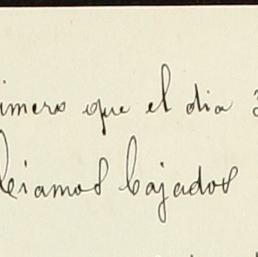 imero que el dia 3
biamos bajados